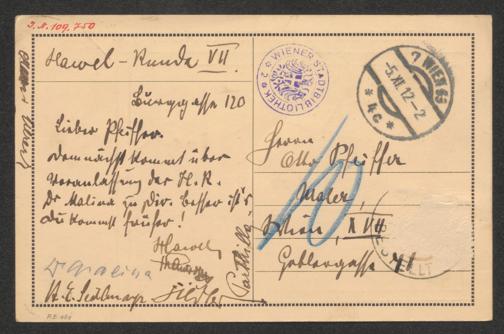 J.N. 109.750
Hawel-Runde VII.
Burggasse 120
Lieber Pfeiffer.
Demnächst kommt über
Veranlassung der H.R.
Dr Malina zu Dir. Besser ist's
Du kommst früher!
Hawel
Dr Malina
A. E. Sedlmayr
WIENER STADTBIBLIOTHEK
7 WIEN 65
-5.XI.12-2
* 4c *
Herrn
Otto Pfeiffer
Maler,
Wien, XVII
Geblergasse
10